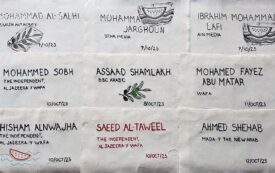 MOHAMMAD AL-SALHI
7/10/23
MOHAMMAD
JARGHOUN
7/10/23
IBRAHIM MOHAMMAD
LAFI
AIN MEDIA
7/10/23
MOHAMMED SOBH
THE INDEPENDENT,
AL JAZEERA Y WAFA
10/OCT/23
ASSAAD SHAMLAKH
BBC ARABIC
8/OCT/23
MOHAMED FAYEZ
ABU MATAR
WAFA
11/OCT/23
HISHAM ALNWAJHA
THE INDEPENDENT,
AL JAZEERA Y WAFA
10/OCT/23
SAEED AL-TAWEEL
THE INDEPENDENT,
AL JAZEERA Y WAFA
10/OCT/23
AHMED SHEHAB
12/OCT/23